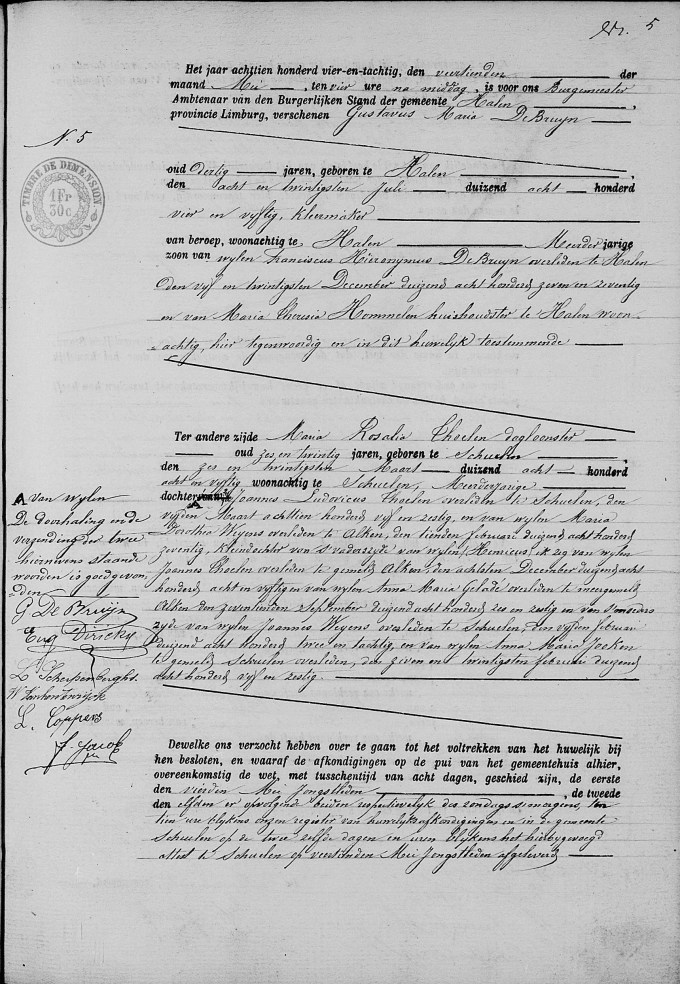 Nr. 5
Het jaar achttien honderd vier-en-tachtig, den veertienden der
maand Mei, ten vier ure na middag, is voor ons Burgemeester
Ambtenaar van den Burgerlijken Stand der gemeente Halen,
provincie Limburg, verschenen Gustavus Maria De Bruyn
N. 5
TIMBRE DE DIMENSION
1 Fr
30 c.
oud dertig jaren, geboren te Halen,
den acht en twintigsten Juli duizend acht honderd
vier en vyftig, kleermaker
van beroep, woonachtig te Halen Meerder jarige
zoon van wylen Franciscus Hieronymus De Bruyn overleden te Halen
den vyf en twintigsten December duizend acht honderd zeven en zeventig
en van Maria Theresia Hommelen huishoudster te Halen woon-
achtig, hier tegenwoordig en in dit huwelyk toestemmende
Ter andere zijde Maria Rosalia Thoelen dagloonster
oud zes en twintig jaren, geboren te Schuelen
den zes en twintigsten Maart duizend acht honderd
acht en vyftig woonachtig te Schuelen, Meerderjarige
dochter Joannes Ludovicus Thoelen overleden te Schuelen, den
vyfden Maart achttien honderd vyf en zestig, en van wylen Maria
Dorothea Weyens overleden te Alken, den tienden februari duizend acht honderd
zeventig, kleindochter van 's vaderszyde van wylen Henricus, ik zeg van wylen
Joannes Thoelen overleden te gemeld Alken, den achtsten December duizend acht
honderd acht en vyftig en van wylen Anna Maria Gelade overleden te meergemeld
Alken den zeventienden September duizend acht honderd zes en zestig en van 's moeders
zyde van wylen Joannes Weyens overleden te Schuelen, den vyfden februari
duizend acht honderd twee en tachtig, en van wylen Anna Maria Jocken
te gemeld Schuelen overleden, den zeven en twintigsten februari duizend
acht honderd vyf en zestig.
A van wylen
De doorhaling en de
verzending der twee
hiernevens staande
woorden is goedgevon-
den
G De Bruijn
Eug Dirickx
L. Scherpenberghs
L. Coppers
J. Jacob
Dewelke ons verzocht hebben over te gaan tot het voltrekken van het huwelijk bij
hen besloten, en waaraf de afkondigingen op de pui van het gemeentehuis alhier,
overeenkomstig de wet, met tusschentijd van acht dagen, geschied zijn, de eerste
den vierden Mei Jongstleden, de tweede
den elfden er opvolgende beiden respectievelyk des zondags 's morgens, ten
tien ure blykens onzen register van huwelyksafkondigingen en in de gemeente
Schuelen op de twee zelfde dagen en uren blykens het hierbygevoegd
attest te Schuelen op veertienden Mei Jongstleden afgeleverd